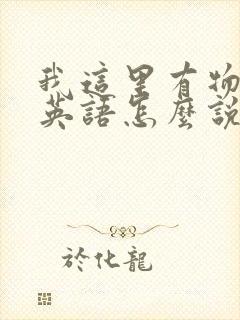 我這里有物
英語怎麼說
於化龍